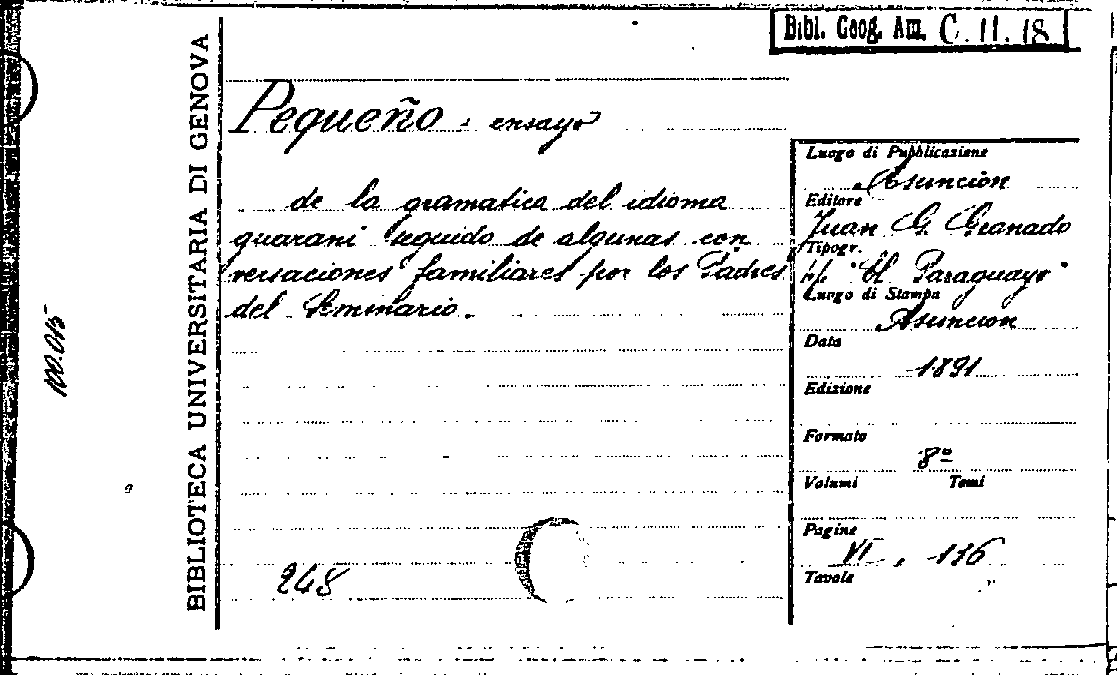 Bibl. Geog. Am. C. 11. 18
BIBLIOTECA UNIVERSITARIA DI GENOVA
100.015
Pequeño ensayo
de la gramatica del idioma
guarani seguido de algunas con
versaciones familiares por los Padres
del Seminario.
248
Luogo di Pubblicazione
Asuncion
Editore
Juan G. Granado
Tipogr.
"El Paraguayo"
Luogo di Stampa
Asuncion
Data
1891
Edizione
Formato
8º
Volumi Tomi
Pagine
VI, 116
Tavole